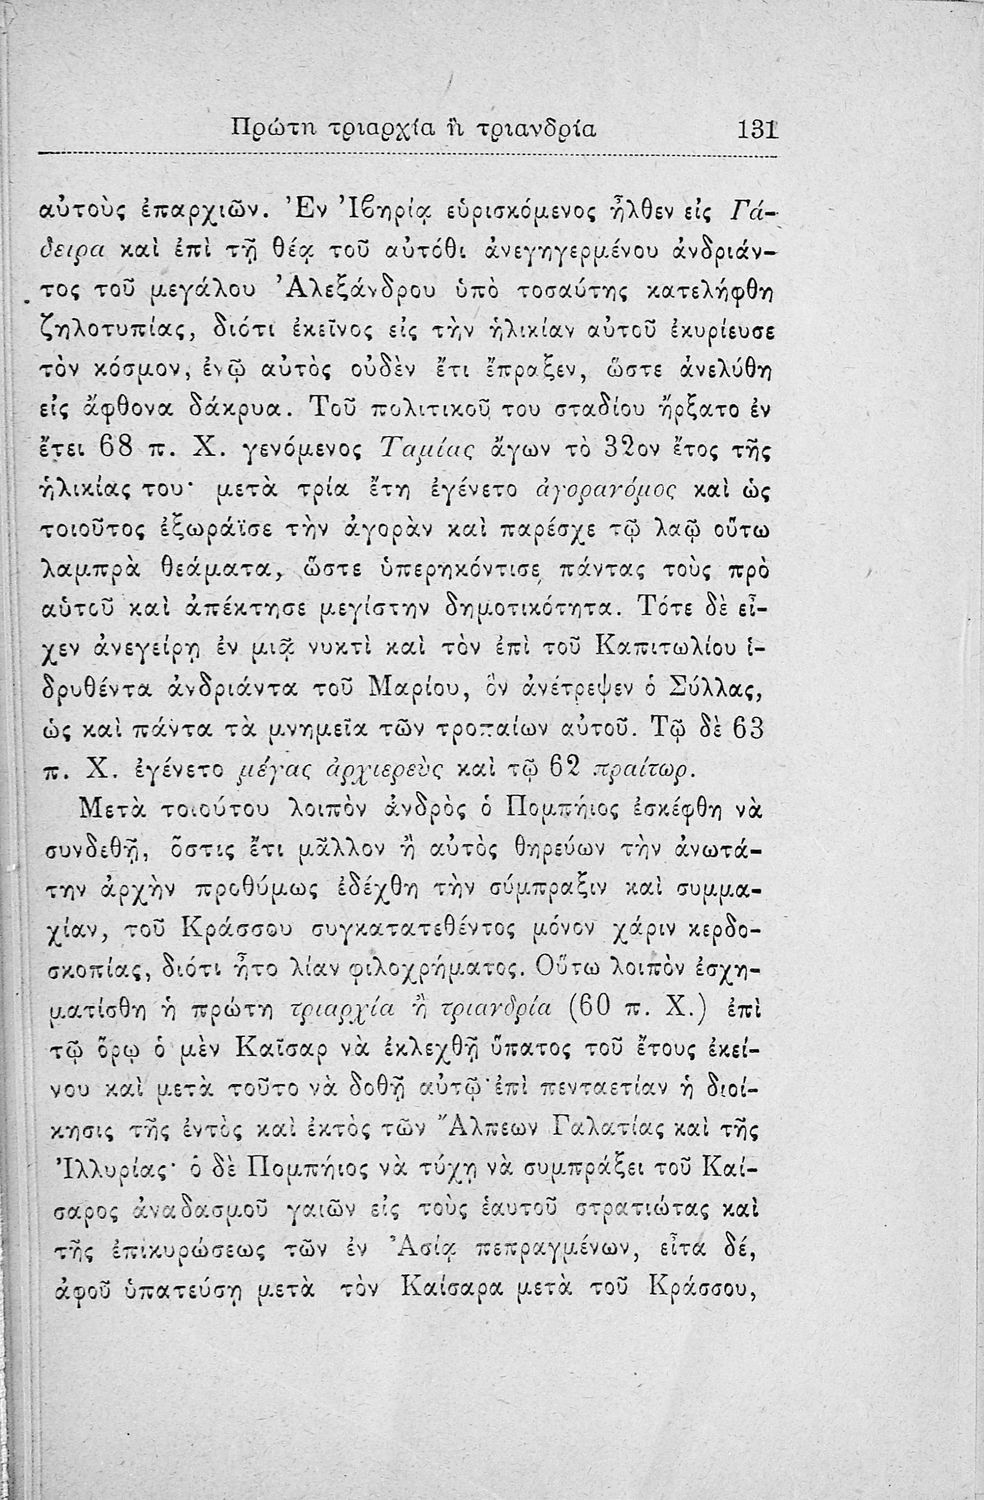 Πρώτη τριαρχία ἢ τριανδρία 131
αὐτοὺς ἐπαρχιῶν. Ἐν Ἰβηρίᾳ εὑρισκόμενος ἦλθεν εἰς Γά-
δειρα καὶ ἐπὶ τῇ θέᾳ τοῦ αὐτόθι ἀνεγηγερμένου ἀνδριάν-
τος τοῦ μεγάλου Ἀλεξάνδρου ὑπὸ τοσαύτης κατελήφθη
ζηλοτυπίας, διότι ἐκεῖνος εἰς τὴν ἡλικίαν αὐτοῦ ἐκυρίευσε
τὸν κόσμον, ἐνῷ αὐτὸς οὐδὲν ἔτι ἔπραξεν, ὥστε ἀνελύθη
εἰς ἄφθονα δάκρυα. Τοῦ πολιτικοῦ του σταδίου ἤρξατο ἐν
ἔτει 68 π. Χ. γενόμενος Ταμίας ἄγων τὸ 32ον ἔτος τῆς
ἡλικίας του· μετὰ τρία ἔτη ἐγένετο ἀγορανόμος καὶ ὡς
τοιοῦτος ἐξωράϊσε τὴν ἀγορὰν καὶ παρέσχε τῷ λαῷ οὕτω
λαμπρὰ θεάματα, ὥστε ὑπερηκόντισε πάντας τοὺς πρὸ
αὑτοῦ καὶ ἀπέκτησε μεγίστην δημοτικότητα. Τότε δὲ εἶ-
χεν ἀνεγείρῃ ἐν μιᾷ νυκτὶ καὶ τὸν ἐπὶ τοῦ Καπιτωλίου ἱ-
δρυθέντα ἀνδριάντα τοῦ Μαρίου, ὃν ἀνέτρεψεν ὁ Σύλλας,
ὡς καὶ πάντα τὰ μνημεῖα τῶν τροπαίων αὐτοῦ. Τῷ δὲ 63
π. Χ. ἐγένετο μέγας ἀρχιερεὺς καὶ τῷ 62 πραίτωρ.
Μετὰ τοιούτου λοιπὸν ἀνδρὸς ὁ Πομπήιος ἐσκέφθη νὰ
συνδεθῇ, ὅστις ἔτι μᾶλλον ἢ αὐτὸς θηρεύων τὴν ἀνωτά-
την ἀρχὴν προθύμως ἐδέχθη τὴν σύμπραξιν καὶ συμμα-
χίαν, τοῦ Κράσσου συγκατατεθέντος μόνον χάριν κερδο-
σκοπίας, διότι ἦτο λίαν φιλοχρήματος. Οὕτω λοιπὸν ἐσχη-
ματίσθη ἡ πρώτη τριαρχία ἢ τριανδρία (60 π. Χ.) ἐπὶ
τῷ ὅρῳ ὁ μὲν Καῖσαρ νὰ ἐκλεχθῇ ὕπατος τοῦ ἔτους ἐκεί-
νου καὶ μετὰ τοῦτο νὰ δοθῇ αὐτῷ ἐπὶ πενταετίαν ἡ διοί-
κησις τῆς ἐντὸς καὶ ἐκτὸς τῶν Ἄλπεων Γαλατίας καὶ τῆς
Ἰλλυρίας· ὁ δὲ Πομπήιος νὰ τύχῃ νὰ συμπράξει τοῦ Καί-
σαρος ἀναδασμοῦ γαιῶν εἰς τοὺς ἑαυτοῦ στρατιώτας καὶ
τῆς ἐπικυρώσεως τῶν ἐν Ἀσίᾳ πεπραγμένων, εἶτα δέ,
ἀφοῦ ὑπατεύσῃ μετὰ τὸν Καίσαρα μετὰ τοῦ Κράσσου,